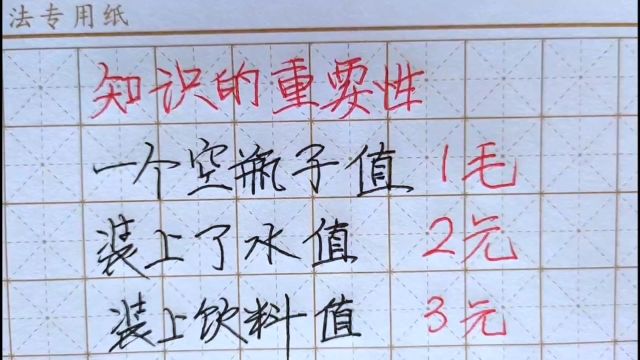 法专用纸
知识的重要性
一个空瓶子值 1毛
装上了水值 2元
装上饮料值 3元